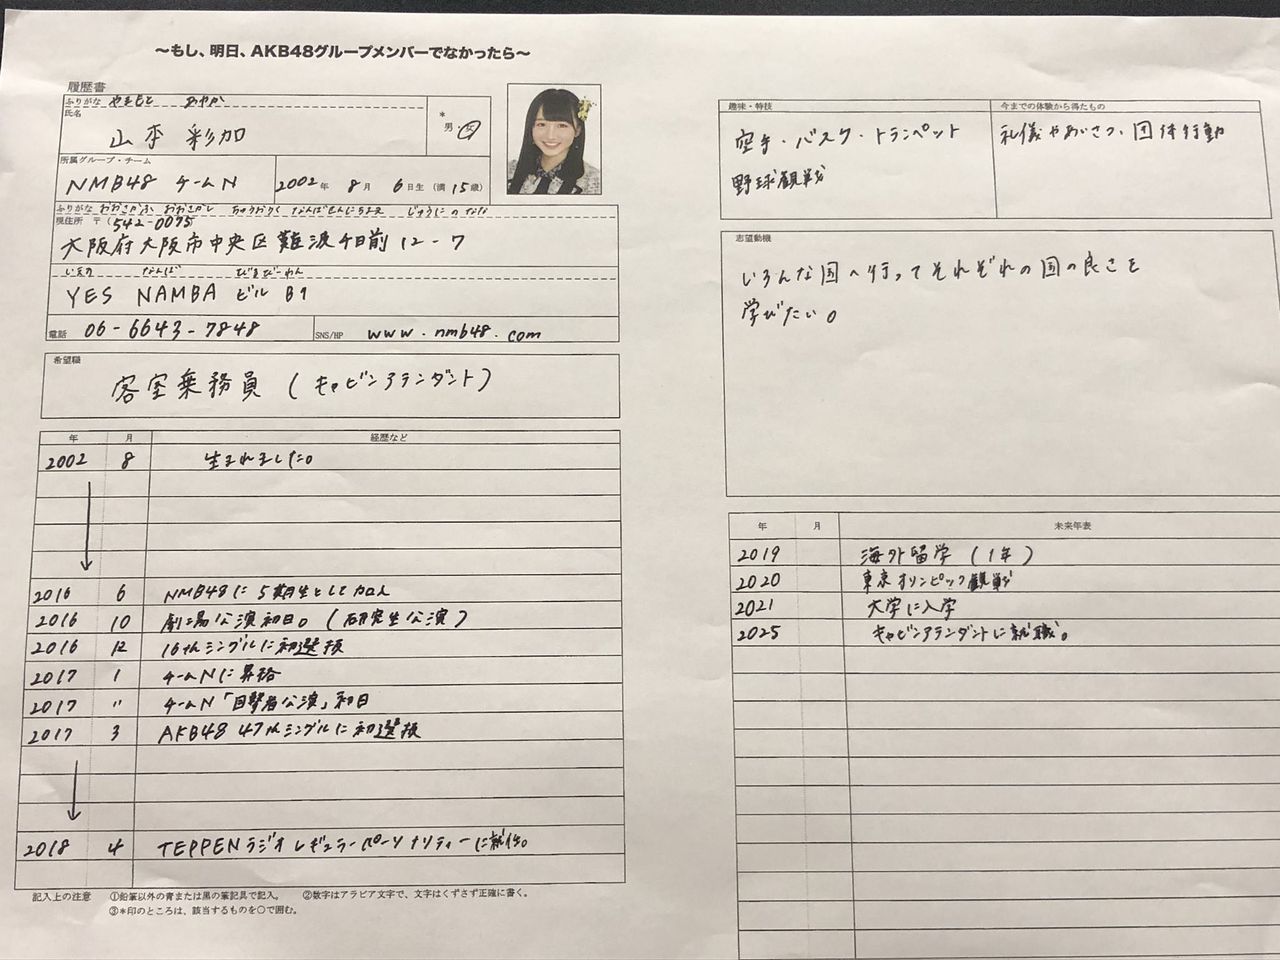 〜もし、明日、AKB48グループメンバーでなかったら〜
履歴書
ふりがな やまもと あやか
氏名
山本 彩加
*
男・女
所属グループ・チーム
NMB48 チームN
2002年 8月 6日生 (満15歳)
ふりがな おおさかふ おおさかし ちゅうおうく なんばせんにちまえ じゅうにのなな
現住所 〒(542-0075)
大阪府大阪市中央区難波千日前12-7
いえす なんば びるびーわん
YES NAMBA ビル B1
電話 06-6643-7848
SNS/HP www.nmb48.com
希望職
客室乗務員 (キャビンアテンダント)
年 月 経歴など
2002 8 生まれました。
2016 6 NMB48に5期生として加入
2016 10 劇場公演初日。(研究生公演)
2016 12 16thシングルに初選抜
2017 1 チームNに昇格
2017 〃 チームN「目撃者公演」初日
2017 3 AKB48 47thシングルに初選抜
2018 4 TEPPENラジオレギュラーパーソナリティーに就任。
記入上の注意 ①鉛筆以外の青または黒の筆記具で記入。 ②数字はアラビア文字で、文字はくずさず正確に書く。
③*印のところは、該当するものを○で囲む。
趣味・特技
空手・バスケ・トランペット
野球観戦
今までの体験から得たもの
礼儀やあいさつ、団体行動
志望動機
いろんな国へ行ってそれぞれの国の良さを
学びたい。
年 月 未来年表
2019 海外留学 (1年)
2020 東京オリンピック観戦
2021 大学に入学
2025 キャビンアテンダントに就職。